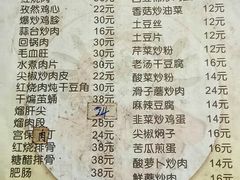 孜然鸡心 22元
爆炒鸡胗 30元
蒜台炒肉 16元
回锅肉 30元
毛血旺 30元
水煮肉片 30元
尖椒炒肉皮 22元
红烧肉炖干豆角 38元
干煸茧蛹 38元
熘肝尖 24
熘肉段 28元
宫保 丁 24元
红烧排骨 38元
糖醋排骨 38元
肥肠 38元
香菇炒油菜 12元
土豆丝
土豆片
芹菜炒粉 12元
老汤干豆腐 12元
酸菜炒粉 12元
滑子蘑炒肉 12元
麻辣豆腐 12元
韭菜炒鸡蛋 14元
尖椒焖子 14元
苦瓜煎蛋 16元
酸萝卜炒肉 16元
鲜蘑炒肉 16元